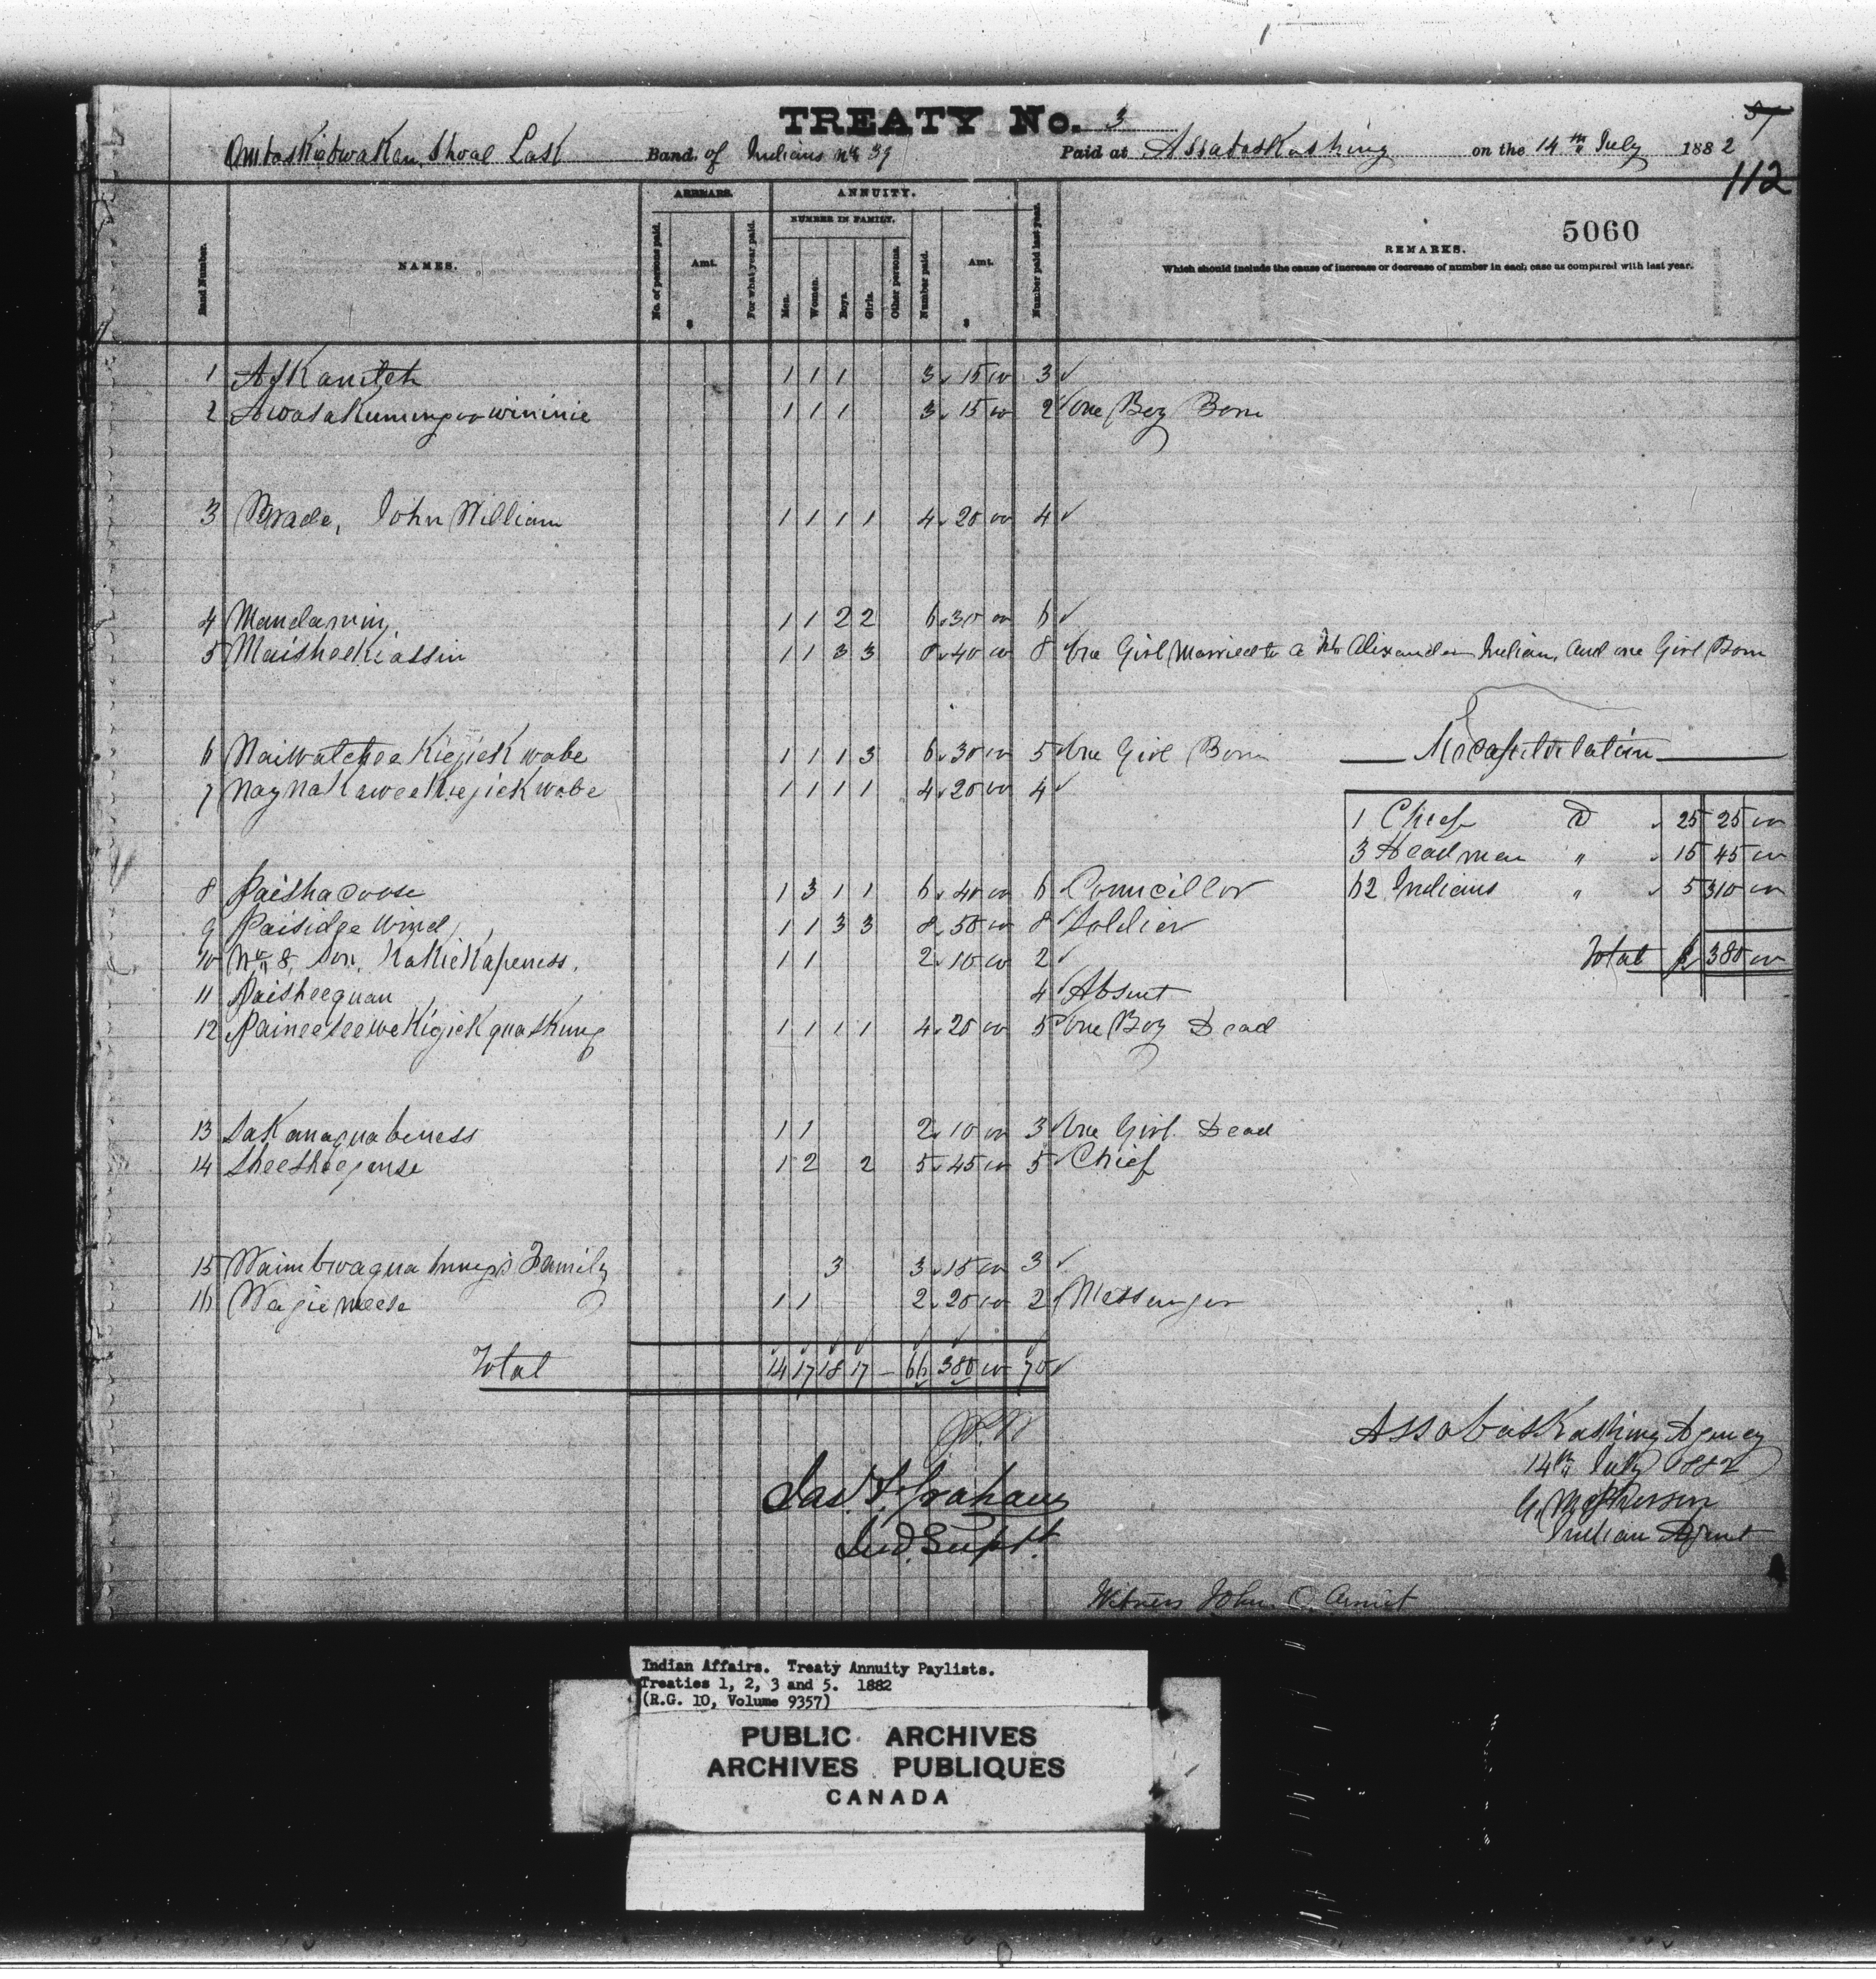 TREATY No. 3
57
Shoal Lake Band of Indians No 39 Paid at Assabaskashing on the 14th July 1882
112
5060
Band Number.
NAMES.
ARREARS.
No. of persons paid.
Amt.
$
For what year paid.
ANNUITY.
NUMBER IN FAMILY.
Men.
Women.
Boys.
Girls.
Other persons.
Number paid.
Amt.
$
Number paid last year.
REMARKS.
Which should include the cause of increase or decrease of number in each case as compared with last year.
1 Askanitch 1 1 1 3 15 00 3 ✓
2 1 1 1 3 15 00 2 ✓ One Boy Born
3 Brade, John William 1 1 1 1 4 20 00 4 ✓
4 Mandamin 1 1 2 2 6 30 00 6 ✓
5 Maisheekiassin 1 1 3 3 8 40 00 8 ✓ One Girl Married to a Mr Alixander Indian, and one Girl Born
6 Naiwatchee Kiejick wabe 1 1 1 3 6 30 00 5 ✓ One Girl Born
7 Naynakawee Kiejick wabe 1 1 1 1 4 20 00 4 ✓
8 Paishacoose 1 3 1 1 6 40 00 6 Councillor
9 Paisidge Wind 1 1 3 3 8 50 00 8 ✓ Soldier
10 No 8, Son, KaKieKapeness. 1 1 2 10 00 2 ✓
11 Paisheequan 4 ✓ Absent
12 Paineeseewe Kigick quaskung 1 1 1 1 4 20 00 5 ✓ One Boy Dead
13 Sakanaquabeness 1 1 2 10 00 3 ✓ One Girl Dead
14 Sheesheegense 1 2 2 5 45 00 5 ✓ Chief
15 Family 3 3 15 00 3 ✓
16 Wagiemeese 1 1 2 20 00 2 ✓ Messenger
Total 14 17 18 17 — 66 380 00 70 ✓
Recapitulation
1 Chief @ 25 25 00
3 Headmen " 15 45 00
62 Indians " 5 310 00
Total $ 380 00
Jas. F. Graham
Ind. Supt.
Assabaskashing Agency
14th July 1882
G. McPherson
Indian Agent
Witness John C.
Indian Affairs. Treaty Annuity Paylists.
Treaties 1, 2, 3 and 5. 1882
(R.G. 10, Volume 9357)
PUBLIC ARCHIVES
ARCHIVES PUBLIQUES
CANADA